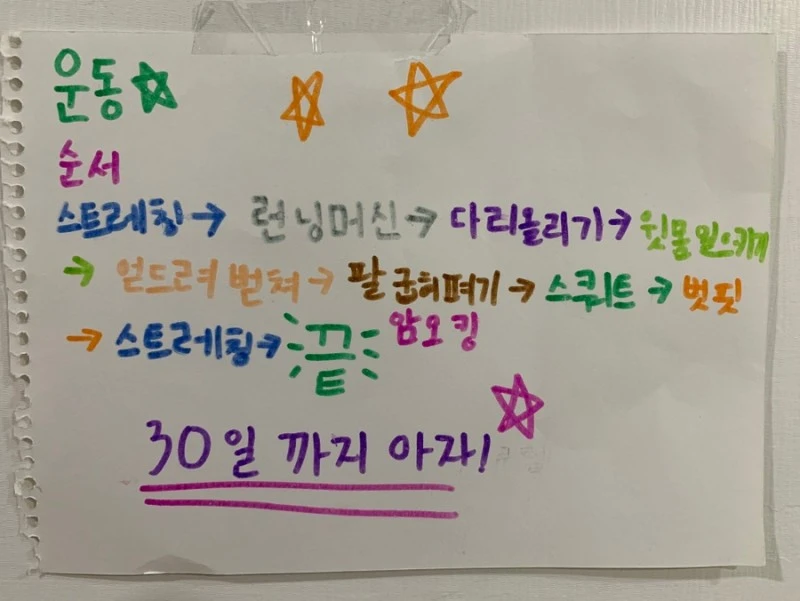 운동
순서
스트레칭→ 런닝머신→ 다리올리기→ 윗몸일으키기
→ 얻드려 벋쳐→ 팔굽혀펴기→ 스쿼트→ 벗핏
→ 스트레칭→ 끝 암오킹
30일 까지 아자!